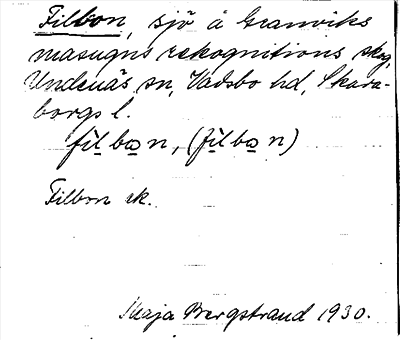 Filbon, sjö å Granviks
masugns rekognitions skog,
Undenäs sn, Vadsbo hd, Skara-
borgs l.
fìlban, (fìlban)
Filbon rk.
Maja Bergstrand 1930.